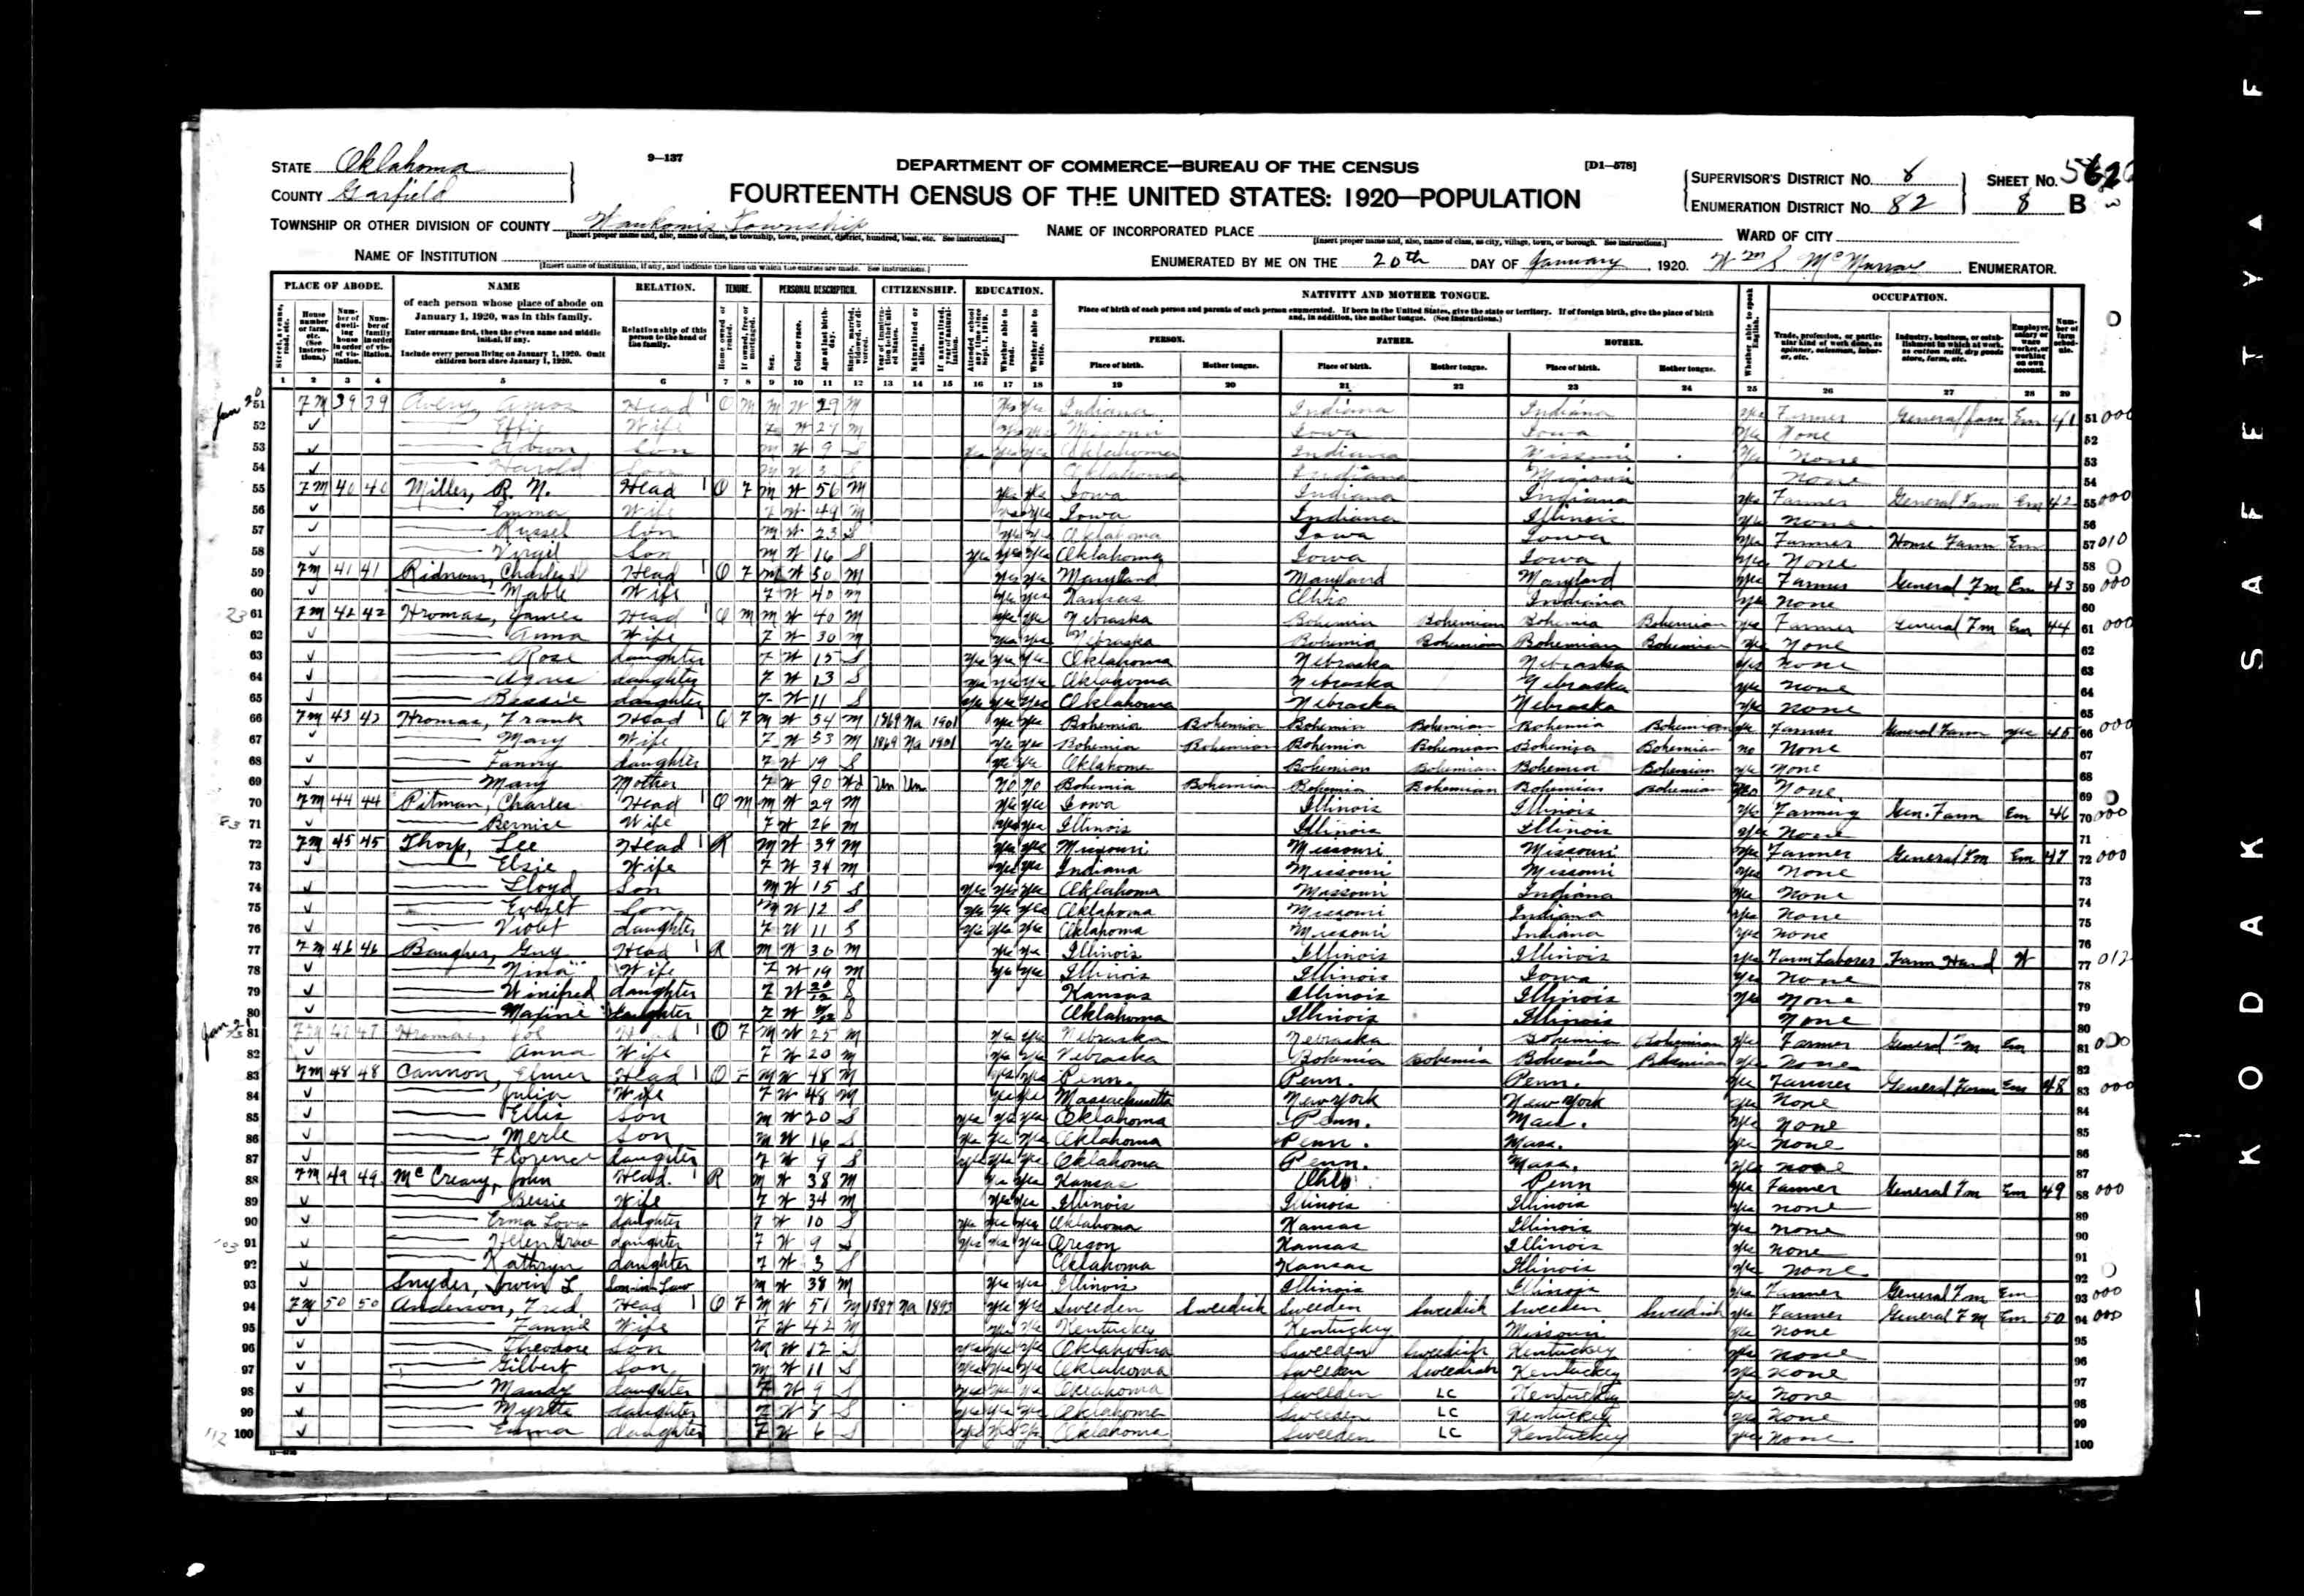 STATE Oklahoma
COUNTY Garfield
9—137
DEPARTMENT OF COMMERCE—BUREAU OF THE CENSUS
[D1—578]
FOURTEENTH CENSUS OF THE UNITED STATES: 1920—POPULATION
SUPERVISOR'S DISTRICT No. 8
ENUMERATION DISTRICT No. 82
SHEET No.
8 B
TOWNSHIP OR OTHER DIVISION OF COUNTY Waukomis Township
NAME OF INCORPORATED PLACE
WARD OF CITY
NAME OF INSTITUTION
ENUMERATED BY ME ON THE 20th DAY OF January, 1920. Wm S. McMurray ENUMERATOR.
PLACE OF ABODE. NAME RELATION. TENURE. PERSONAL DESCRIPTION. CITIZENSHIP. EDUCATION. NATIVITY AND MOTHER TONGUE. OCCUPATION.
of each person whose place of abode on January 1, 1920, was in this family.
Enter surname first, then the given name and middle initial, if any.
Include every person living on January 1, 1920. Omit children born since January 1, 1920.
Relationship of this person to the head of the family.
Place of birth of each person and parents of each person enumerated. If born in the United States, give the state or territory. If of foreign birth, give the place of birth and, in addition, the mother tongue. (See Instructions.)
PERSON. FATHER. MOTHER.
Place of birth. Mother tongue. Place of birth. Mother tongue. Place of birth. Mother tongue.
1 2 3 4 5 6 7 8 9 10 11 12 13 14 15 16 17 18 19 20 21 22 23 24 25 26 27 28 29
51 Fm 39 39 Avery, Amos Head O M M W 29 M Yes Yes Indiana Indiana Indiana Yes Farmer General farm Em 41
52 Effie Wife F W 27 M Missouri Iowa Iowa Yes None
53 Son M W 9 S Oklahoma Indiana Missouri Yes None
54 Harold Son M W 3 S Oklahoma Indiana Missouri None
55 Fm 40 40 Miller, R. N. Head O F M W 56 M Yes Yes Iowa Indiana Indiana Yes Farmer General Farm Em 42
56 Emma Wife F W 49 M Yes Yes Iowa Indiana Illinois Yes None
57 Russel Son M W 23 S Yes Yes Oklahoma Iowa Iowa Yes Farmer Home Farm Em
58 Virgil Son M W 16 S Yes Yes Yes Oklahoma Iowa Iowa Yes None
59 Fm 41 41 Ridnour, Charles Head O F M W 50 M Yes Yes Maryland Maryland Maryland Yes Farmer General Fm Em 43
60 Mable Wife F W 40 M Yes Yes Kansas Ohio Indiana Yes None
61 Fm 42 42 Hromas, James Head O M M W 40 M Yes Yes Nebraska Bohemia Bohemian Bohemia Bohemian Yes Farmer General Fm Em 44
62 Anna Wife F W 30 M Yes Yes Nebraska Bohemia Bohemian Bohemian Bohemian Yes None
63 Rose daughter F W 15 S Yes Yes Yes Oklahoma Nebraska Nebraska Yes None
64 Agnes daughter F W 13 S Yes Yes Yes Oklahoma Nebraska Nebraska Yes None
65 Bessie daughter F W 11 S Yes Yes Yes Oklahoma Nebraska Nebraska Yes None
66 Fm 43 43 Hromas, Frank Head O F M W 54 M 1869 Na 1901 Yes Yes Bohemia Bohemia Bohemia Bohemian Bohemia Bohemian Yes Farmer General Farm 45
67 Mary Wife F W 53 M 1869 Na 1901 Yes Yes Bohemia Bohemian Bohemia Bohemian Bohemia Bohemian no None
68 Fanny daughter F W 19 S Yes Yes Oklahoma Bohemian Bohemian Bohemia Bohemian Yes None
69 Mary Mother F W 90 Wd Un Un No No Bohemia Bohemian Bohemia Bohemian Bohemian Bohemian None
70 Fm 44 44 Pitman, Charles Head O M M W 29 M Yes Yes Iowa Illinois Illinois Yes Farming Gen. Farm Em 46
71 Bernice Wife F W 26 M Yes Yes Illinois Illinois Illinois Yes None
72 Fm 45 45 Thorp, Lee Head R M W 39 M Yes Yes Missouri Missouri Missouri Yes Farmer General Fm Em 47
73 Elsie Wife F W 34 M Yes Yes Indiana Missouri Missouri Yes None
74 Lloyd Son M W 15 S Yes Yes Yes Oklahoma Missouri Indiana Yes None
75 Son M W 12 S Yes Yes Yes Oklahoma Missouri Indiana Yes None
76 Violet daughter F W 11 S Yes Yes Yes Oklahoma Missouri Indiana Yes None
77 Fm 46 46 Baugher, Guy Head R M W 30 M Yes Yes Illinois Illinois Illinois Yes Farm Laborer Farm Hand W
78 Nina Wife F W 19 M Yes Yes Illinois Illinois Iowa Yes None
79 Winifred daughter F W S Kansas Illinois Illinois Yes None
80 Maxine daughter F W S Oklahoma Illinois Illinois None
81 Fm 47 47 Hromas, Joe Head O F M W 25 M Yes Yes Nebraska Nebraska Bohemia Bohemian Yes Farmer General Fm Em
82 Anna Wife F W 20 M Yes Yes Nebraska Bohemia Bohemia Bohemia Bohemian Yes None
83 Fm 48 48 Cannon, Elmer Head O F M W 48 M Yes Yes Penn. Penn. Penn. Yes Farmer General Farm Em 48
84 Julia Wife F W 48 M Yes Yes Massachusetts New York New York Yes None
85 Ellis Son M W 20 S Yes Yes Yes Oklahoma Penn. Mass. Yes None
86 Merle Son M W 16 S Yes Yes Yes Oklahoma Penn. Mass. Yes None
87 Florence daughter F W 9 S Yes Yes Yes Oklahoma Penn. Mass. Yes None
88 Fm 49 49 McCreary, John Head R M W 38 M Yes Yes Kansas Ohio Penn Yes Farmer General Fm Em 49
89 Bessie Wife F W 34 M Yes Yes Illinois Illinois Illinois Yes None
90 Erma daughter F W 10 S Yes Yes Yes Oklahoma Kansas Illinois Yes None
91 Helen Grace daughter F W 9 S Yes Yes Yes Oregon Kansas Illinois Yes None
92 Kathryn daughter F W 3 S Oklahoma Kansas Illinois Yes None
93 Snyder, Irwin L Son-in-Law M W 38 M Yes Yes Illinois Illinois Illinois Yes Farmer General Fm Em
94 Fm 50 50 Anderson, Fred Head O F M W 51 M 1887 Na 1893 Yes Yes Sweeden Sweedish Sweeden Sweedish Sweeden Sweedish Yes Farmer General Fm Em 50
95 Fannie Wife F W 42 M Yes Yes Kentuckey Kentuckey Missouri Yes None
96 Theodore Son M W 12 S Yes Yes Yes Oklahoma Sweeden Sweedish Kentuckey Yes None
97 Gilbert Son M W 11 S Yes Yes Yes Oklahoma Sweeden Sweedish Kentuckey Yes None
98 Mandy daughter F W 9 S Yes Yes Yes Oklahoma Sweeden LC Kentuckey Yes None
99 Myrtle daughter F W 8 S Yes Yes Yes Oklahoma Sweeden LC Kentuckey Yes None
100 Emma daughter F W 6 S Yes Yes Yes Oklahoma Sweeden LC Kentuckey Yes None
KODAK SAFETY AF